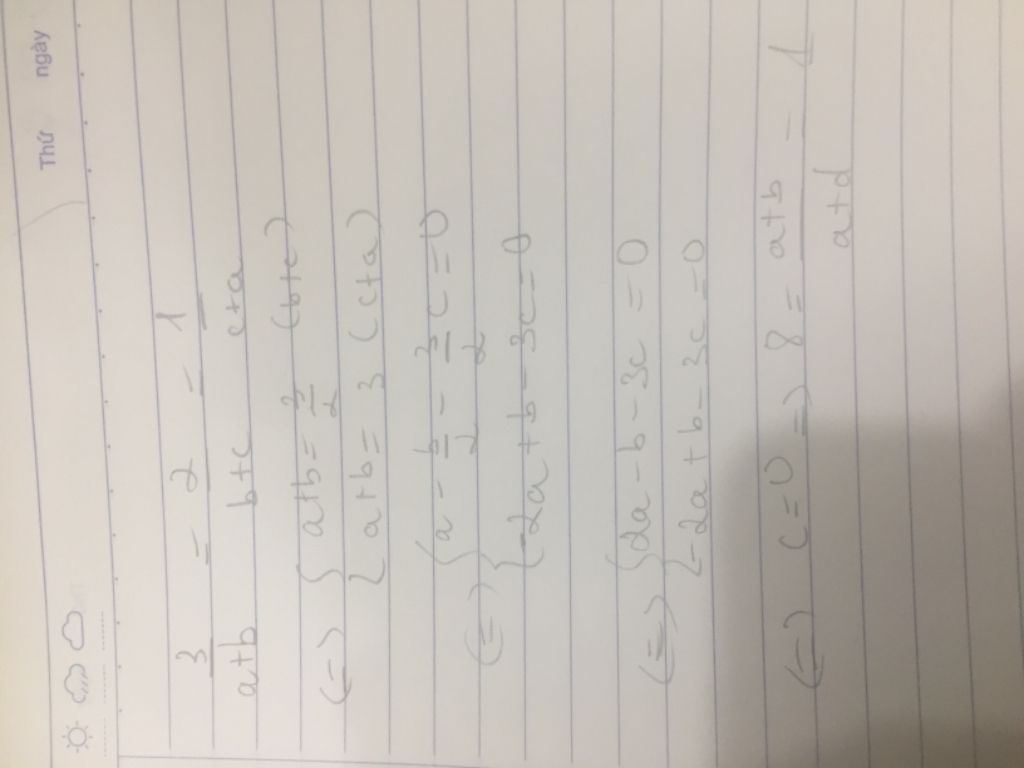 Thứ ngày
3/(a+b) = 2/(b+c) = 1/(c+a)
(=) { a+b = 3/2 (b+c)
{ a+b = 3 (c+a)
(=) { a - b/2 - 3/2 c = 0
{ -2a + b - 3c = 0
(=) { 2a - b - 3c = 0
{ -2a + b - 3c = 0
(=) c = 0 => 8 = (a+b)/(a+d) = 1